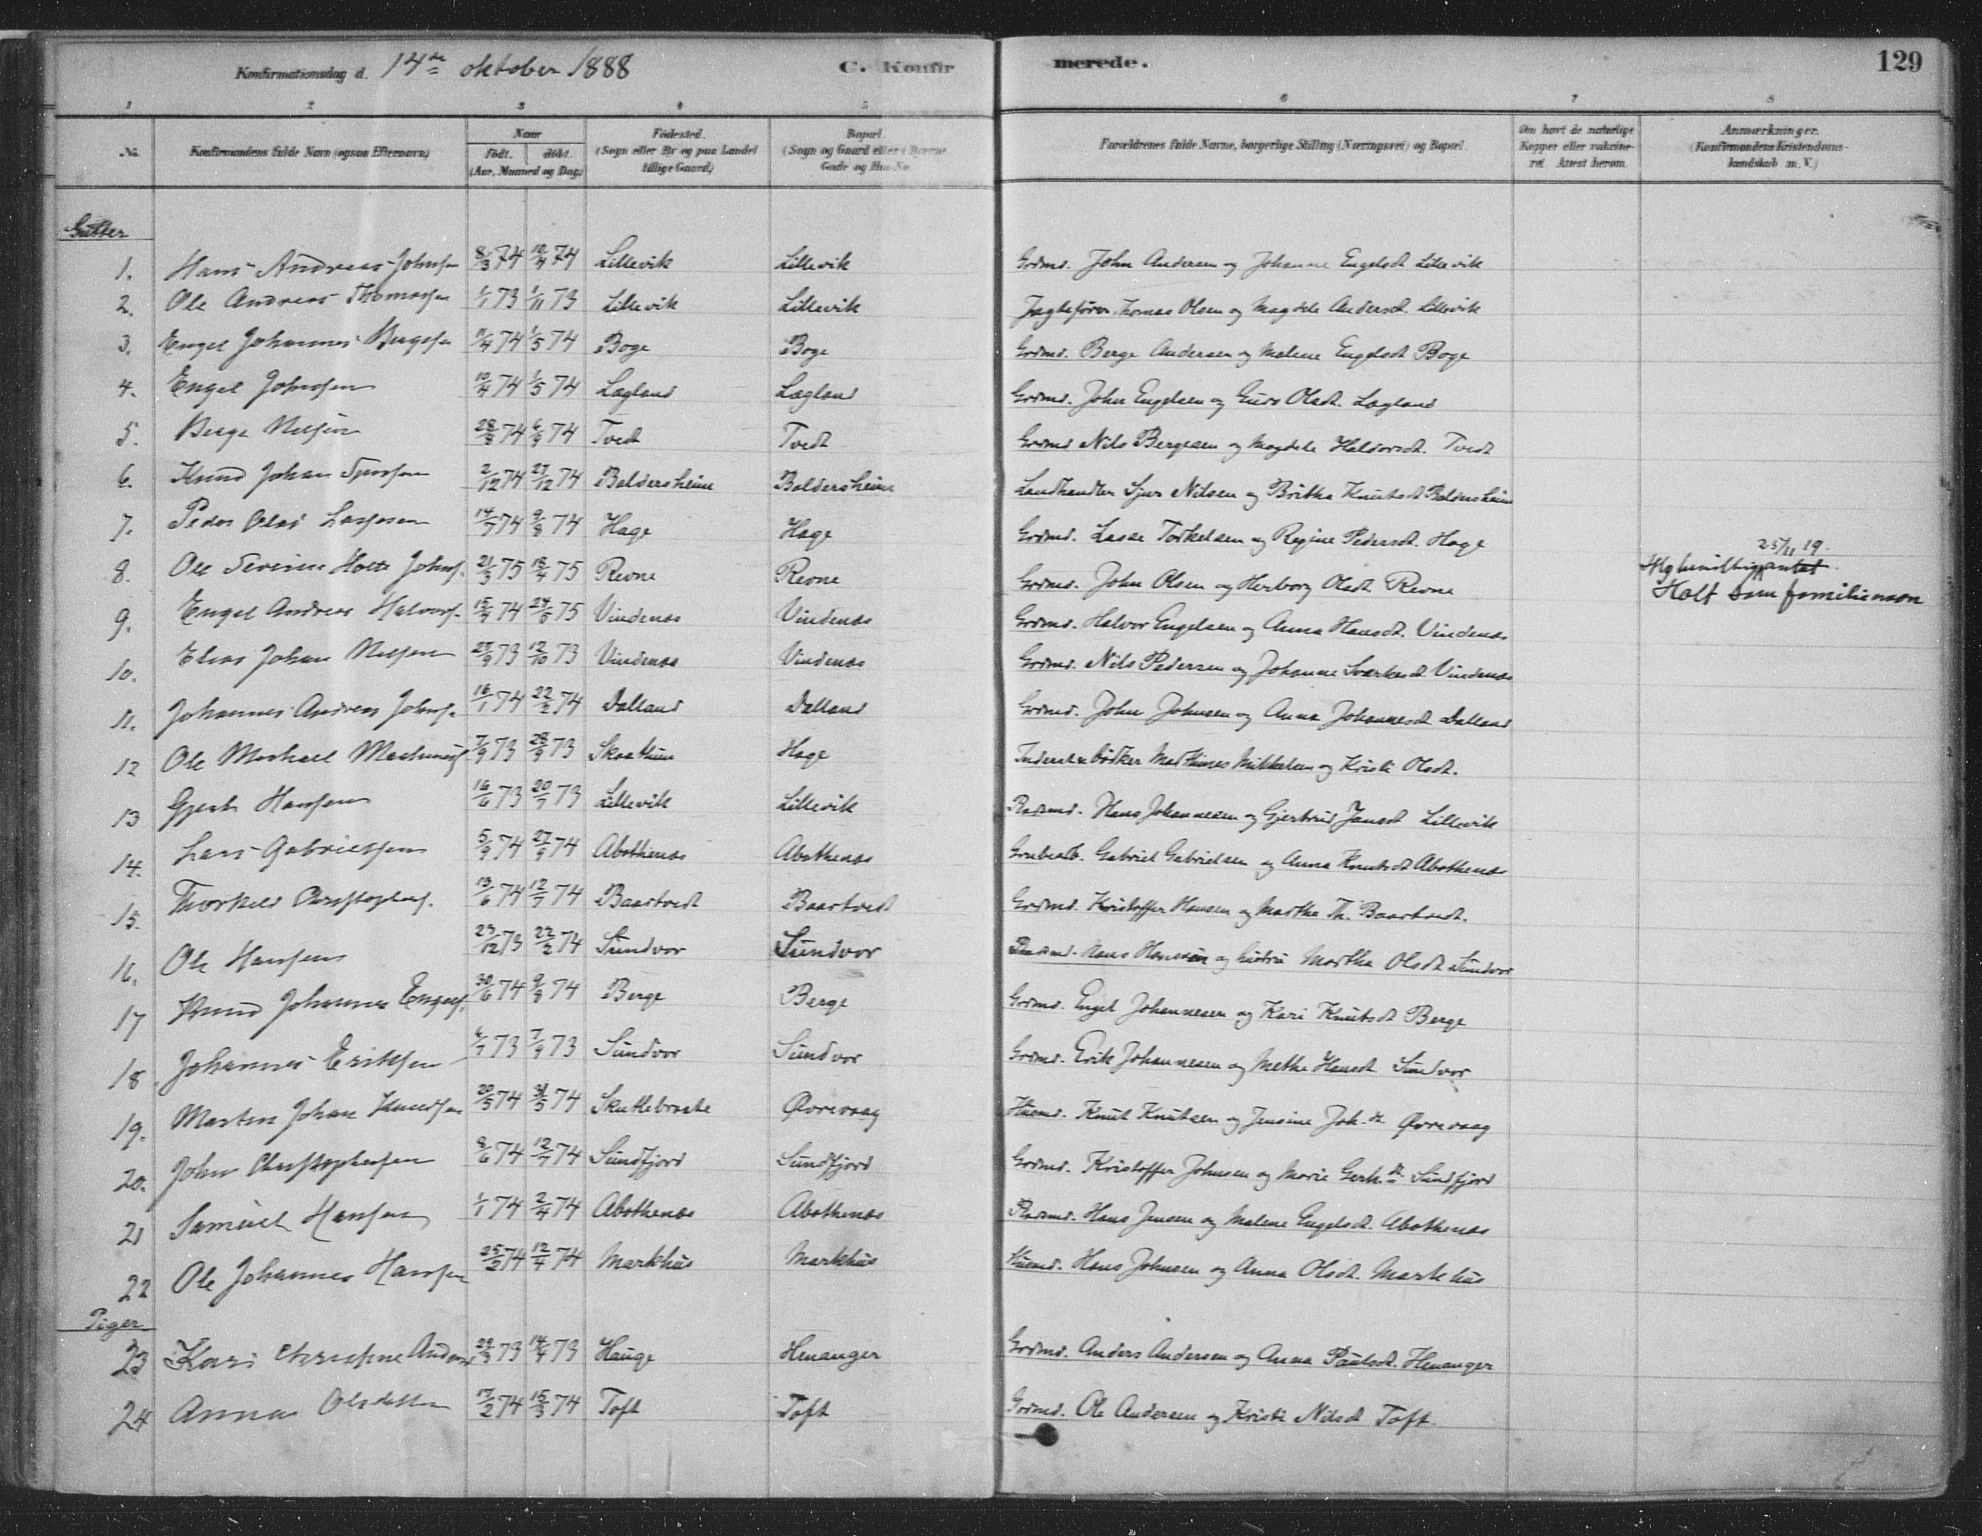 Konfirmationsdag d. 14de oktober 1888 C. Konfirmerede. 129
1 2 3 4 5 6 7 8
No. Konfirmandens fulde Navn (ogsaa Efternavn) Naar født. døbt. (Aar, Maaned og Dag) Fødested. (Sogn eller By og paa Landet tillige Gaard) Bopæl. (Sogn og Gaard eller i Byerne Gade og Hus-No. Forældrenes fulde Navne, borgerlige Stilling (Næringsvei) og Bopæl. Om havt de naturlige Kopper eller vakcineret. Attest herom. Anmærkninger. (Konfirmandens Kristendomskundskab m. V.)
Gutter
1. Hans Andreas Johnsen 8/3 74 12/4 74 Lillevik Lillevik Grdmd. John Andersen og Johanne Engelsdt Lillevik
2. Ole Andreas Thomassen 1/1 73 1/11 73 Lillevik Lillevik Jagtefører Thomas Olsen og Magdele Andersdt. Lillevik
3. Engel Johannes Bergesen 11/4 74 1/5 74 Boge Boge Grdmd. Berge Andersen og Malene Engelsdt Boge
4. Engel Johnsen 10/4 74 1/5 74 Lægland Lægland Grdmd. John Engelsen og Guro Olsdt. Lægland
5. Berge Nilsen 28/8 74 6/9 74 Tvedt Tvedt Grdmd Nils Bergesen og Magdele Haldorsdt. Tvedt
6. Knud Johan Sjursen 2/12 74 27/12 74 Baldersheim Baldersheim Landhandler Sjur Nilsen og Britha Knutsdt Baldersheim
7. Peder Olai Lassesen 14/7 74 9/8 74 Hage Hage Grdmd. Lasse Torkelsen og Regine Pedersdt. Hage
8. Ole Severin Holte Johns. 21/3 75 18/4 75 Revne Revne Grdmd. John Olsen og Herborg Olsdt Revne 25/11 19. Kg bevilling antat Holt som familienavn
9. Engel Andreas Halvors. 15/9 74 24/5 75 Vindenes Vindenes Grdmd. Halvor Engelsen og Anna Hansdt. Vindenes
10. Elias Johan Nilsen 27/9 73 12/10 73 Vindenes Vindenes Grdmd. Nils Pedersen og Johanne Sværkesdt Vindenes
11. Johannes Andreas Johns. 16/1 74 22/2 74 Dalland Dalland Grdmd. John Johnsen og Anna Johannesdt Dalland
12 Ole Mikael Mathiness 7/9 73 28/9 73 Hage bødker Mathines Mikkelsen og Kristi Olsdt.
13 Gjert Hansen 16/6 73 20/7 73 Lillevik Lillevik Pladsmd. Hans Johannesen og Gjertrud Jansdt Lillevik
14. Lars Gabrielsen 5/9 74 27/9 74 Abothenes Abothenes Grubearb. Gabriel Gabrielsen og Anna Knutsdt Abothenes
15. Thorkild Christophers. 13/6 74 12/7 74 Baartvedt Baartvedt Grdmd. Kristoffer Hansen og Martha Th. Baartvedt.
16. Ole Hansen 23/12 73 22/2 74 Sundvor Sundvor Pladsmd. Hans Hansen og hustru Martha Olsdt Sundvor
17 Knud Johannes Engels. 30/6 74 9/8 74 Berge Berge Grdmd. Engel Johannesen og Kari Knutsdt Berge
18 Johannes Eriksen 6/7 73 7/9 73 Sundvor Sundvor Grdmd. Erik Johannesen og Methe Hansdt Sundvor
19. Marten Johan Knudsen 20/5 74 31/5 74 Skutlebrote Øvrevaag Husmd. Knut Knutsen og Jensine Joh.dt. Øvrevaag
20. John Christophersen 8/6 74 12/7 74 Sundfjord Sundfjord Grdmd. Kristoffer Johnsen og Marie Gerh.dt Sundfjord
21 Samuel Hansen 1/1 74 2/4 74 Abothenes Abothenes Pladsmd. Hans Jensen og Malene Engelsdt. Abothenes
22 Ole Johannes Hansen 25/2 74 12/4 74 Markhus Markhus Husmd. Hans Johnsen og Anna Olsdt. Markhus
Piger
23 Kari Christine Anders 29/3 73 14/4 73 Hauge Henanger Grdmd. Anders Andersen og Anna Paulsdt. Henanger
24 Anna Olsdatter 17/2 74 15/3 74 Toft Toft Grdmd. Ole Andersen og Kristi Nilsdt Toft.